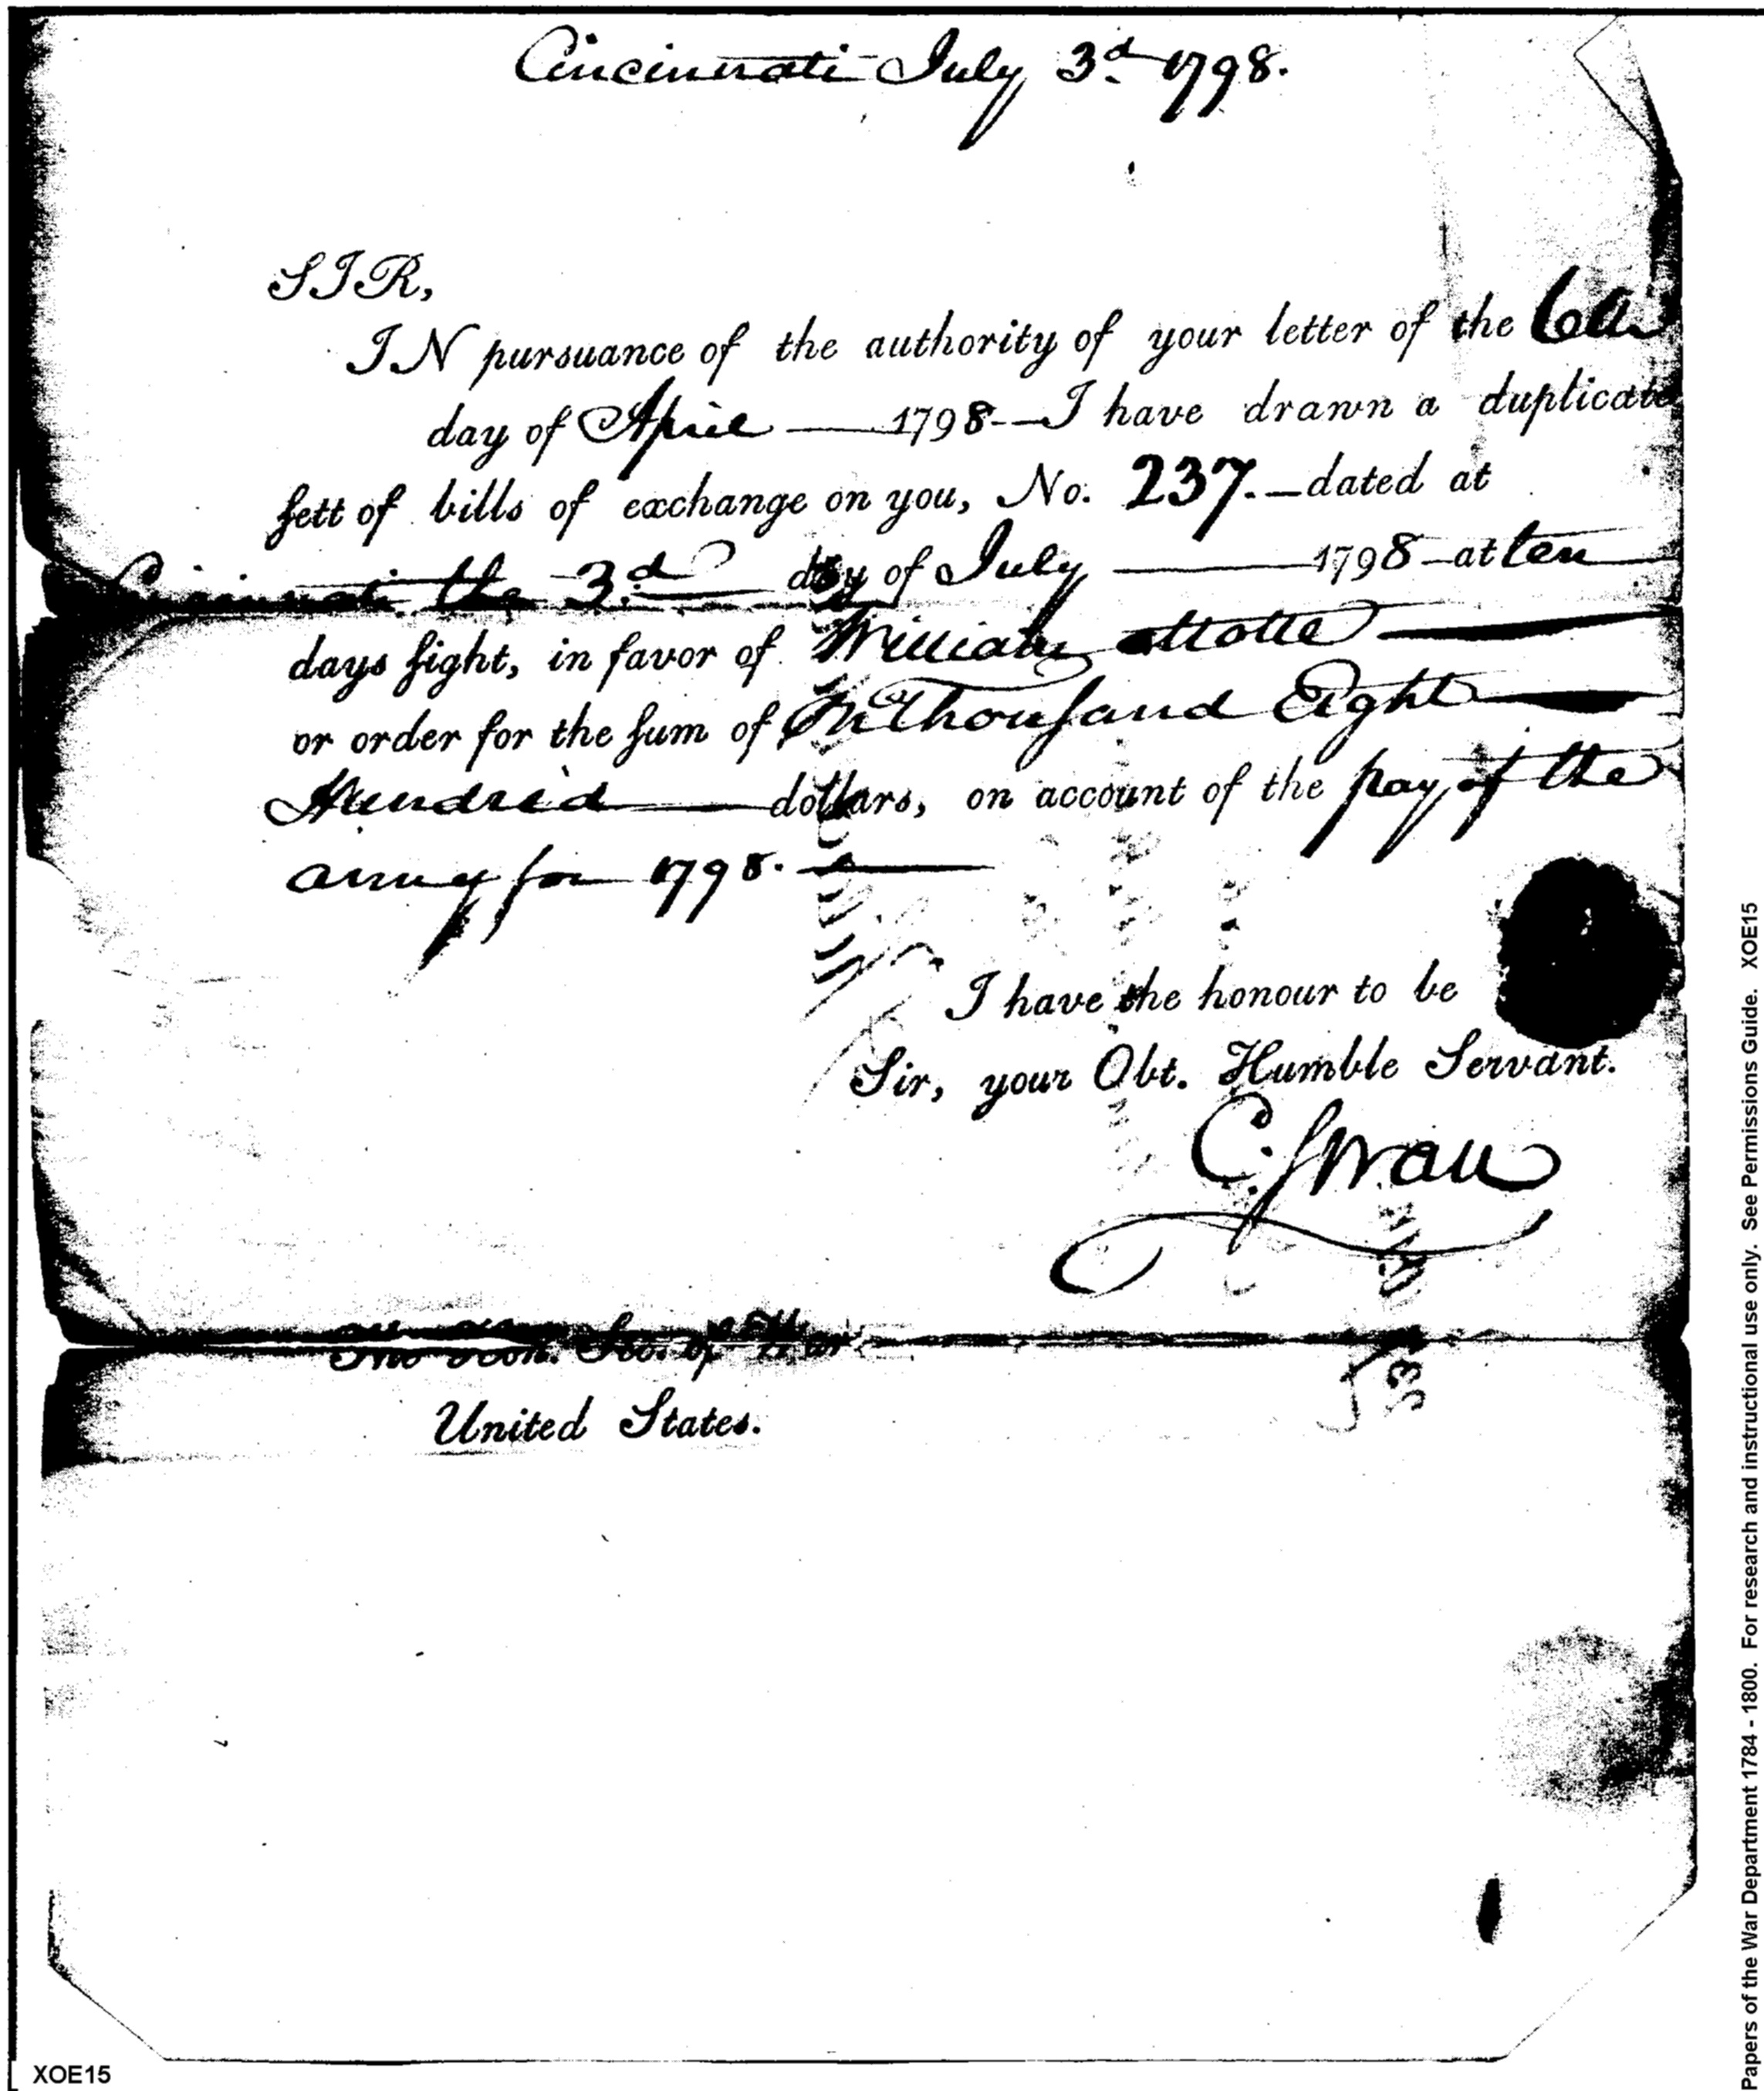 Cincinnati July 3d 1798.
SIR,
IN pursuance of the authority of your letter of the
day of April 1798 I have drawn a duplicate
sett of bills of exchange on you, No. 237. dated at
Cincinnati the 3.d day of July 1798 at ten
days sight, in favor of William
or order for the sum of Thousand Eight
Hundred dollars, on account of the pay of the
army for 1798.
I have the honour to be
Sir, your Obt. Humble Servant.
C. Swan
The Hon. Sec. of War
United States.
XOE15
Papers of the War Department 1784 - 1800. For research and instructional use only. See Permissions Guide. XOE15